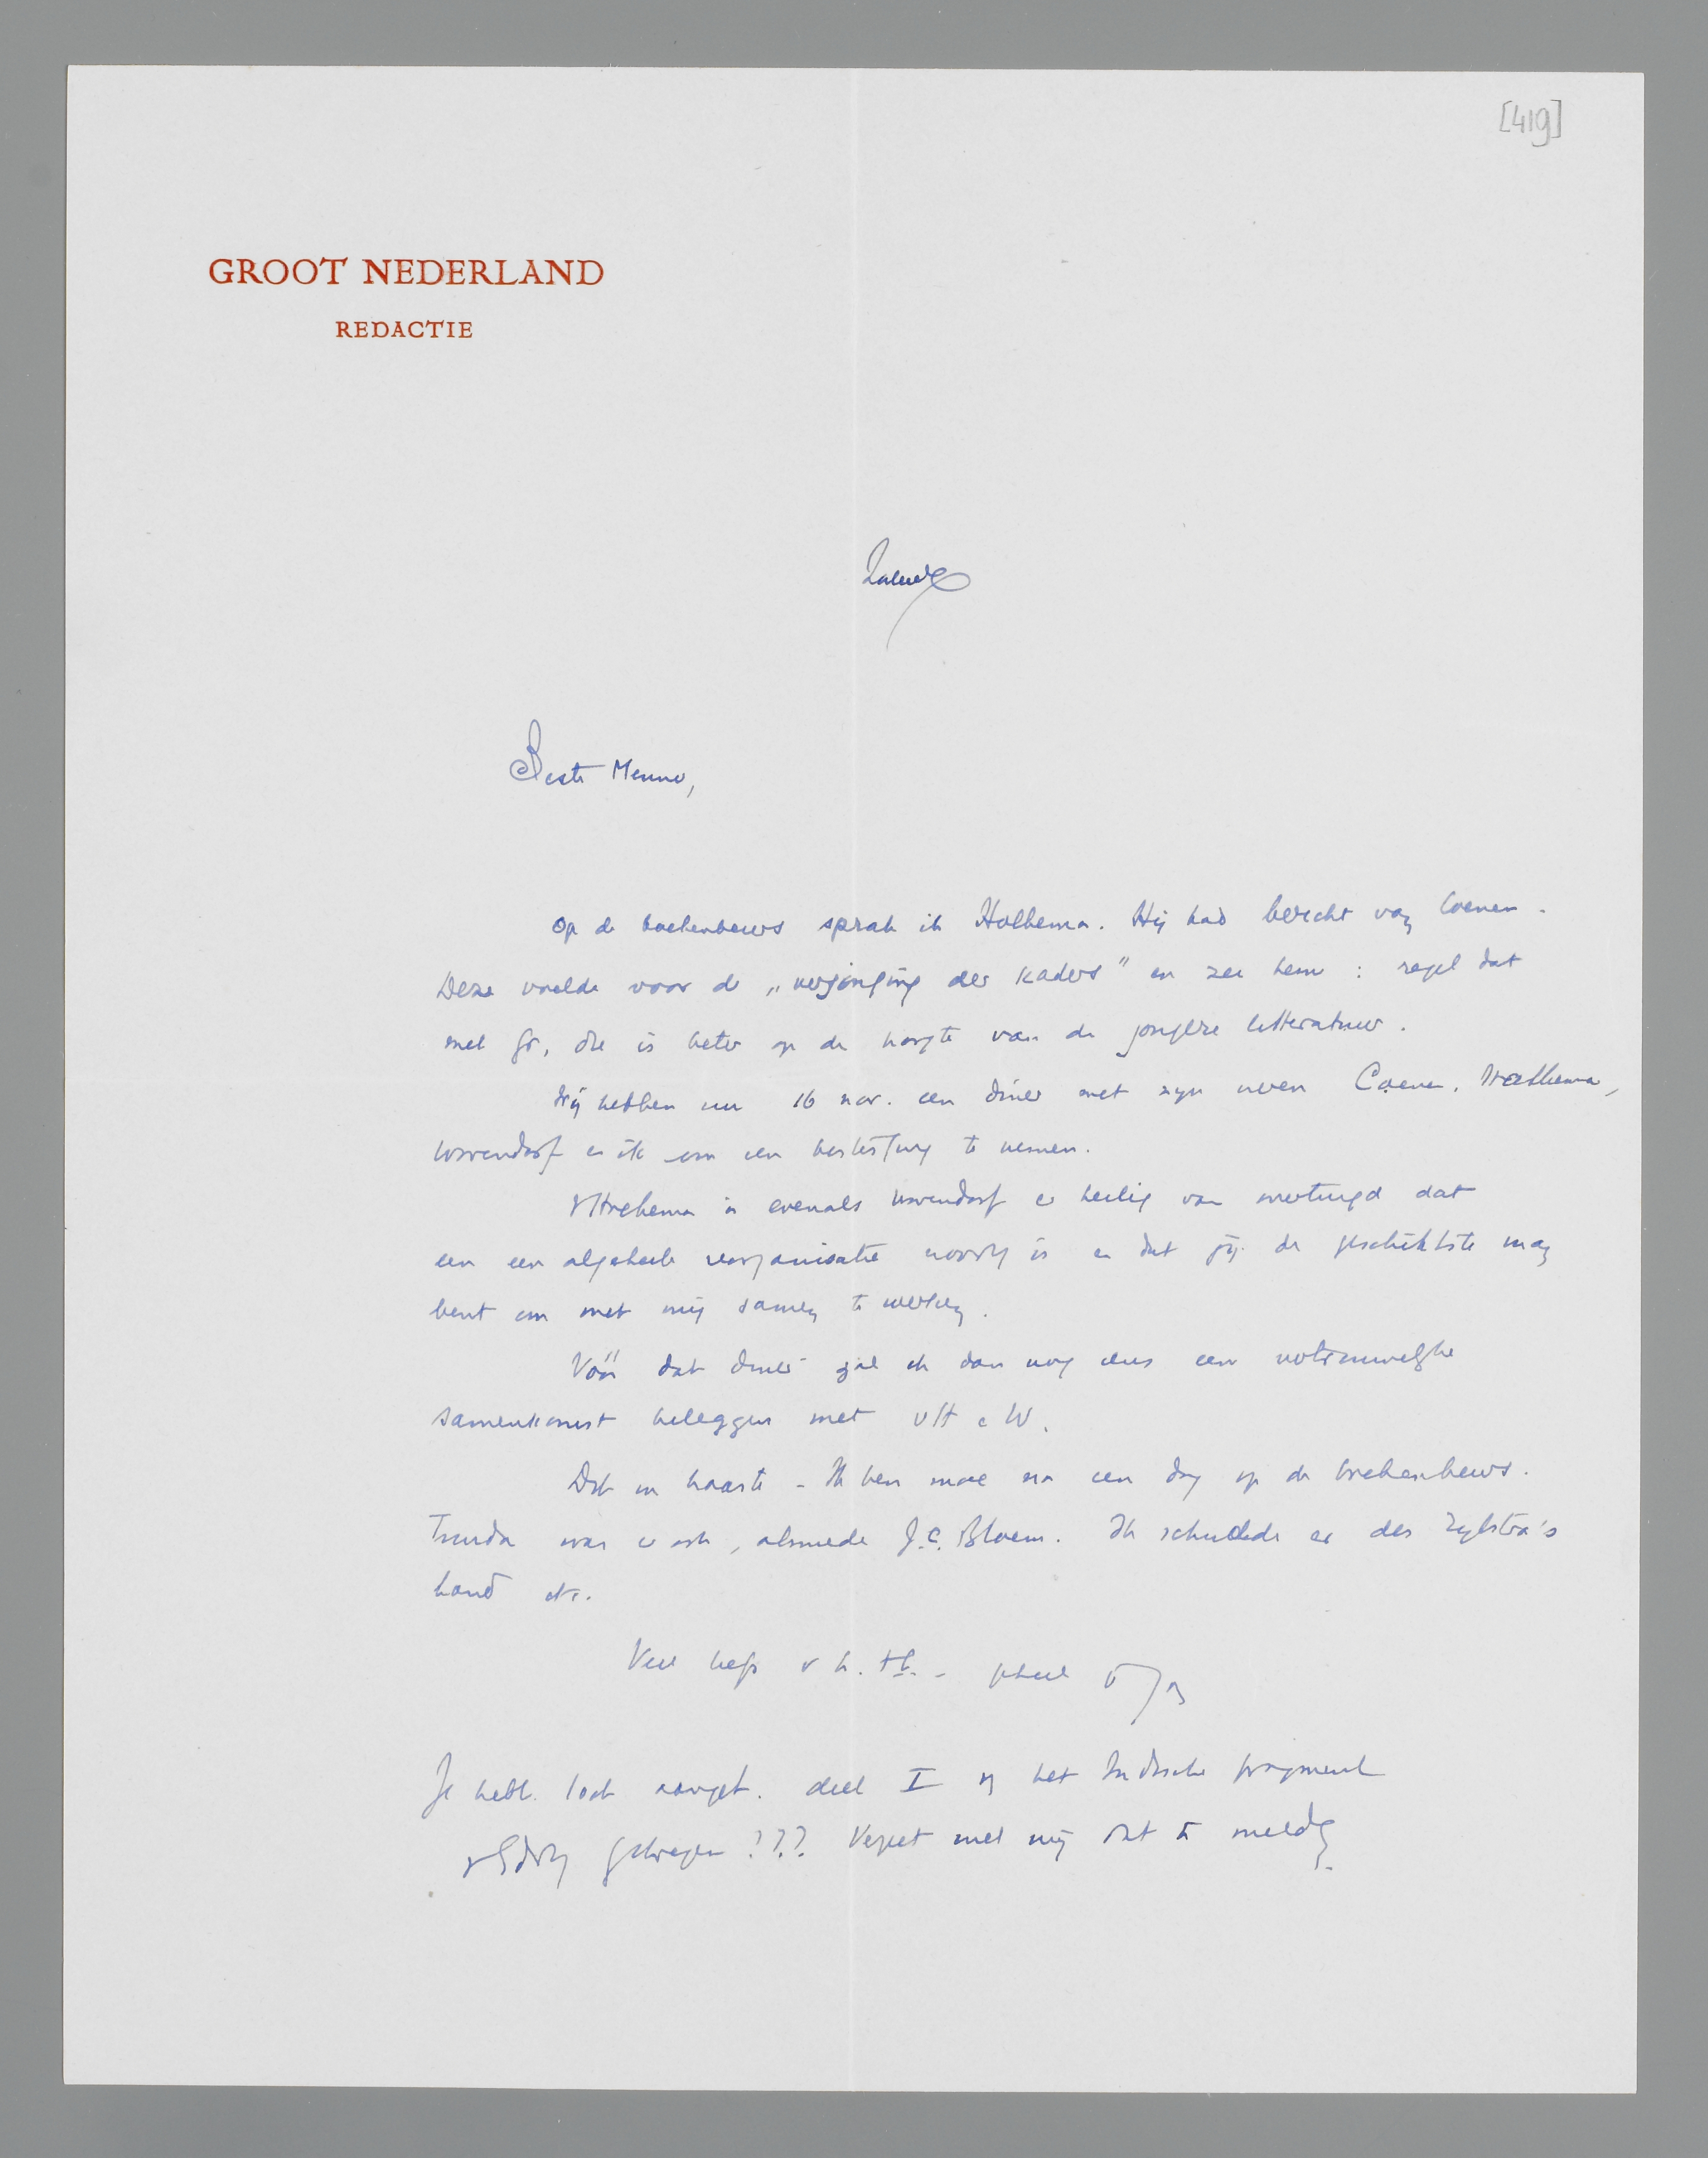 [419]
GROOT NEDERLAND
REDACTIE
Beste Menno,
Op de boekenbeurs sprak ik Holkema. Hij had bericht van Coenen.
Deze voelde voor de „verjonging der kaders" en zei hem : regel dat
met Gr, die is beter op de hoogte van de jongere letteratuur.
Wij hebben nu 16 nov. een diner met zijn vieren Coenen, v Holkema,
Warendorf en ik om een beslissing te nemen.
v Holkema is evenals Warendorf er heilig van overtuigd dat
een een algeheele reorganisatie noodig is en dat jij de geschiktste man
bent om met mij samen te werken.
Vóór dat diner zal ik dan nog eens een vertrouwelijke
samenkomst beleggen met v H en W.
Dit in haaste - Ik ben moe na een dag op de boekenbeurs.
Truida was er ook, alsmede J.C. Bloem. Ik schudde er des Zijlstra's
hand etc.
Veel liefs v h. t h. - geheel
Je hebt toch aanget. deel I en het Indische fragment
gekregen ??? Vergeet niet mij dat te melden